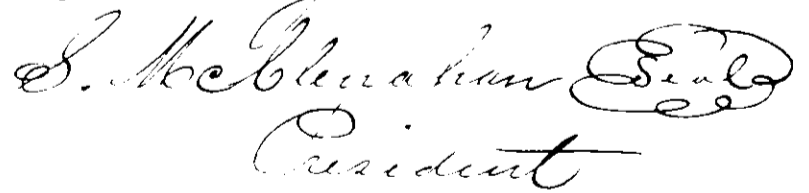 S. McClenahan Seal
President